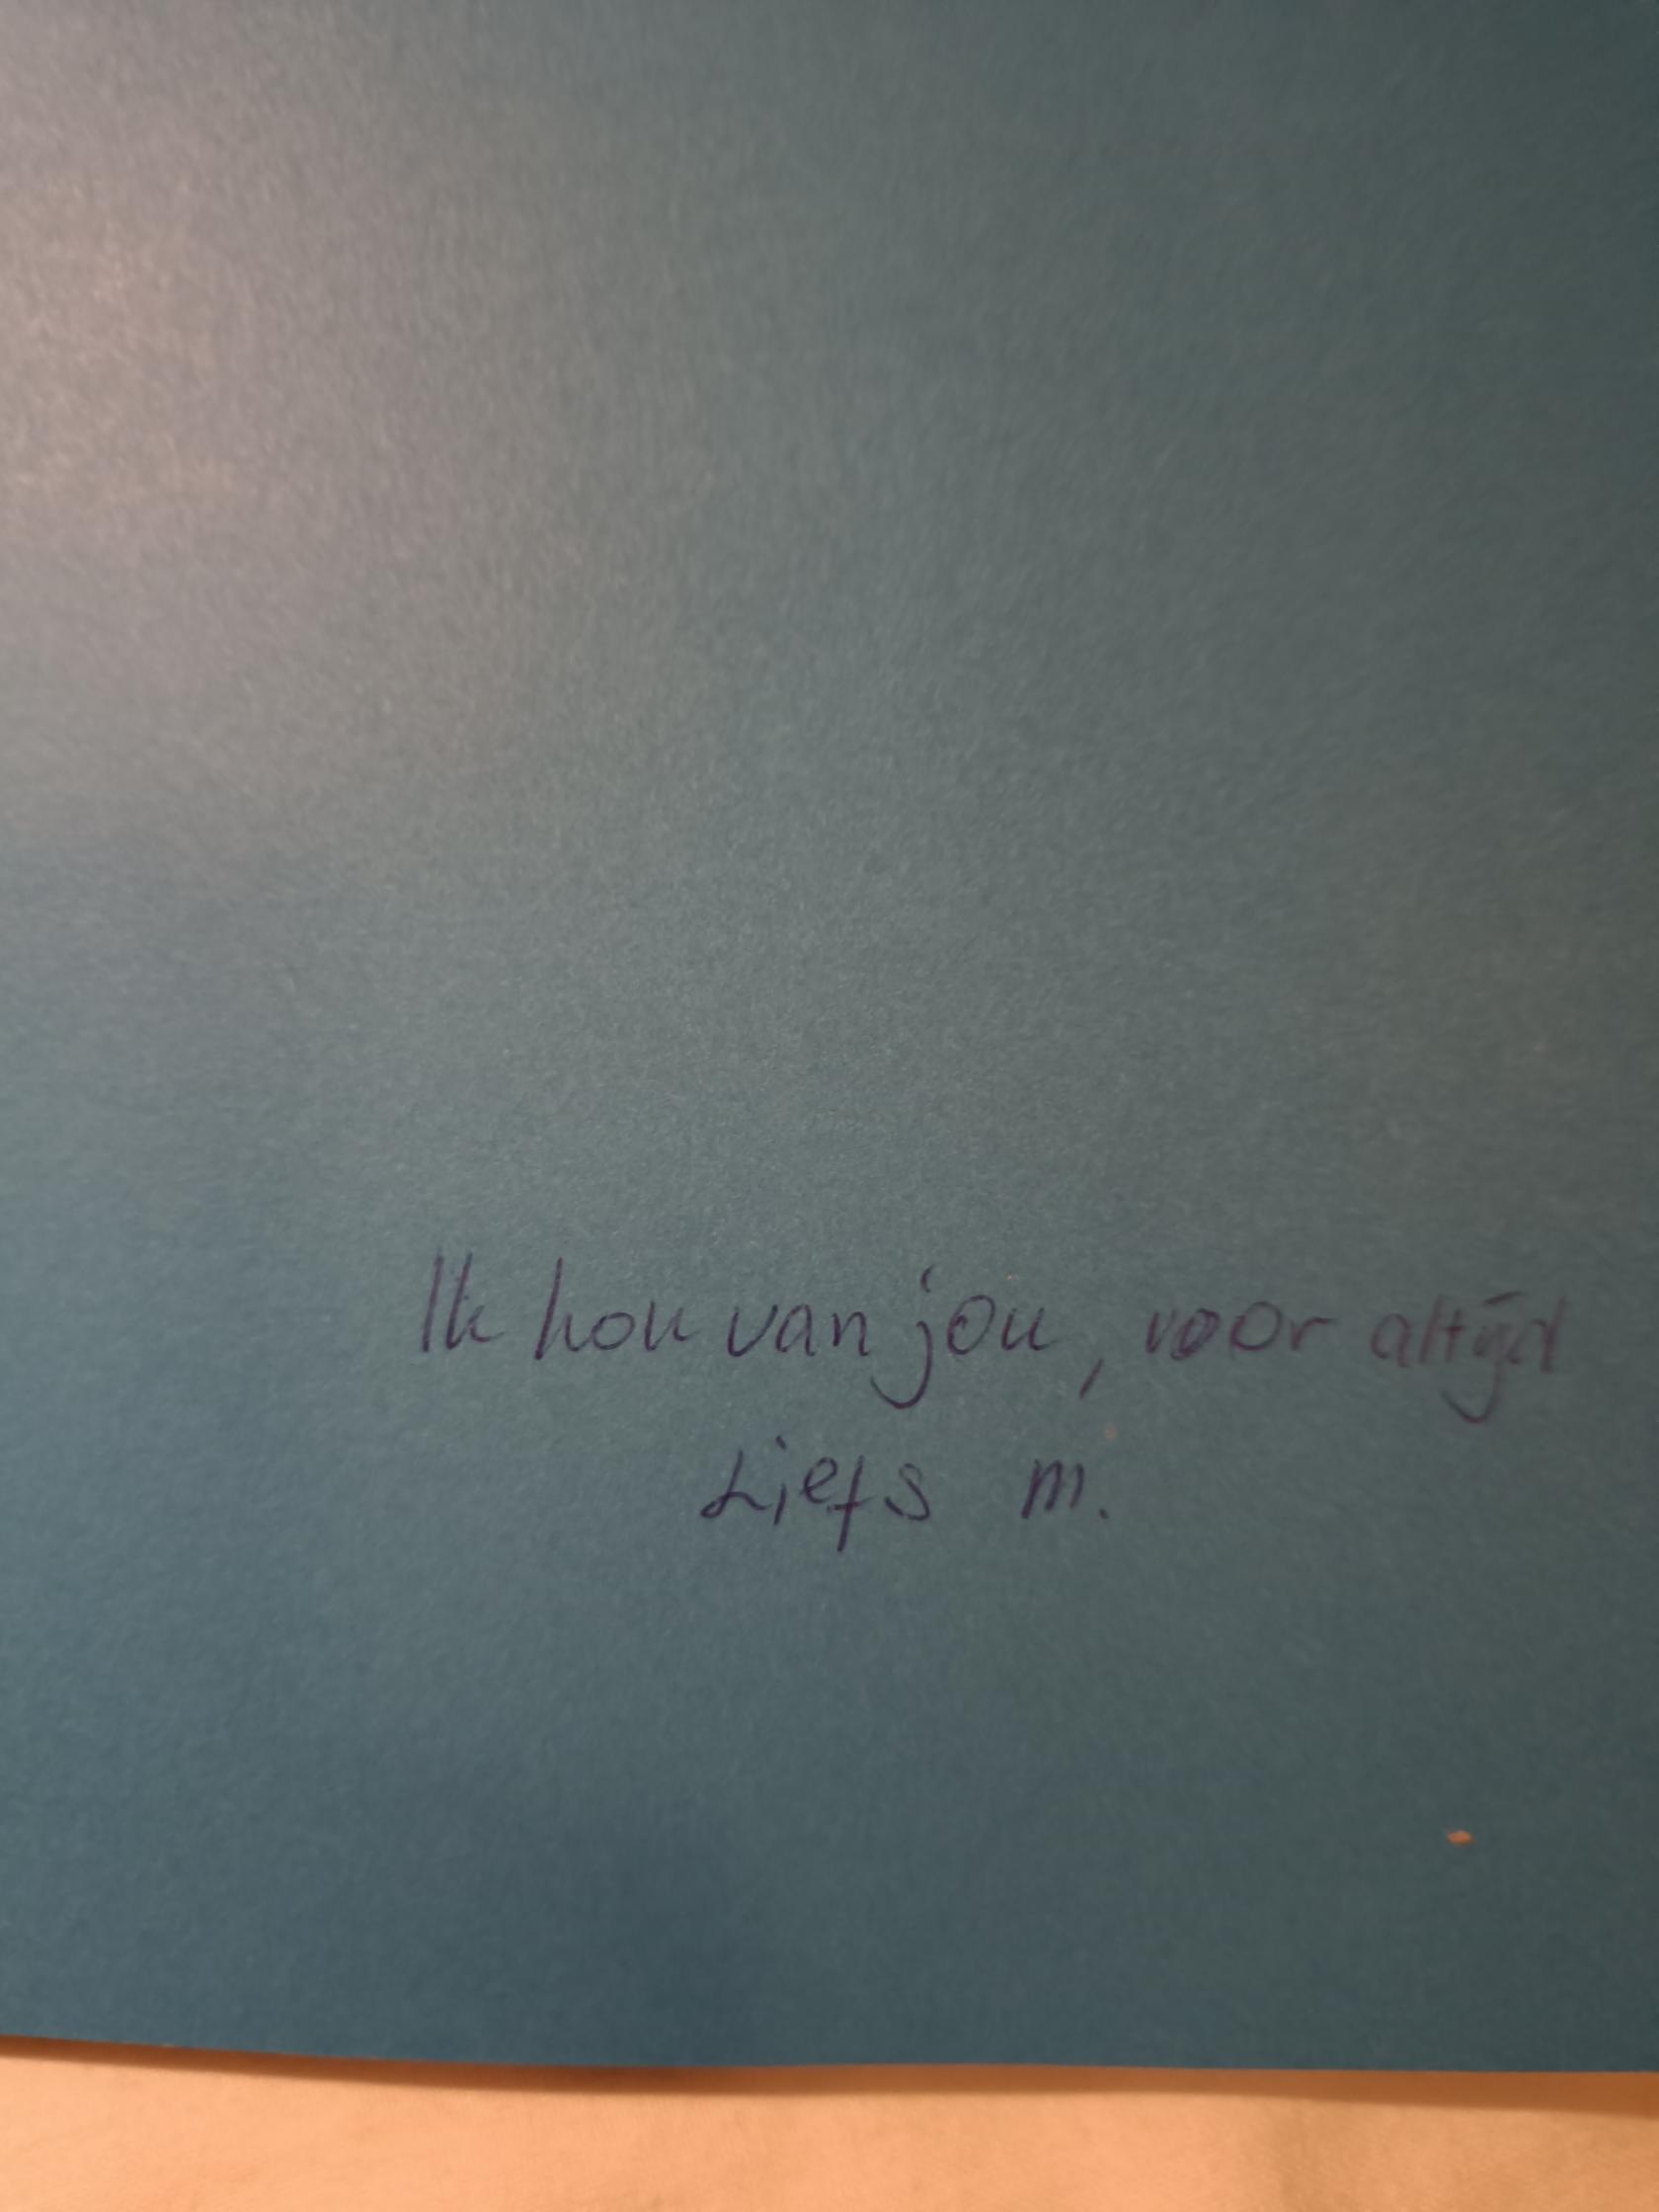 Ik hou van jou, voor altijd
Liefs m.